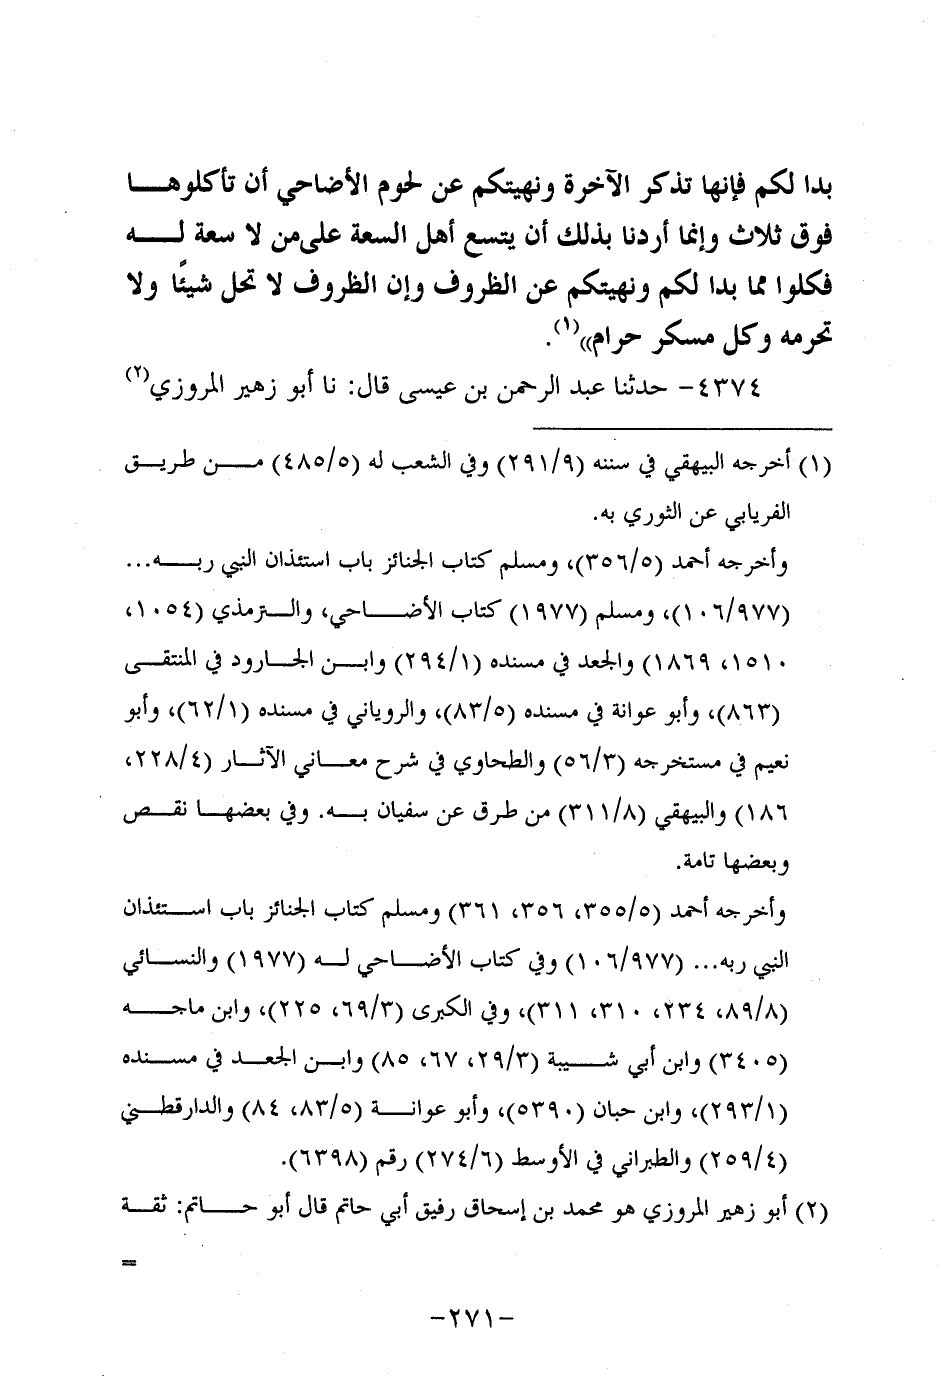 بدا لكم فإنها تذكر الآخرة ونهيتكم عن لحوم الأضاحي أن تأكلوهـــا
فوق ثلاث وإنما أردنا بذلك أن يتسع أهل السعة على من لا سعة لـــه
فكلوا مما بدا لكم ونهيتكم عن الظروف وإن الظروف لا تحل شيئًا ولا
تحرمه وكل مسكر حرام»(١).
٤٣٧٤- حدثنا عبد الرحمن بن عيسى قال: نا أبو زهير المروزي(٢)
(١) أخرجه البيهقي في سننه (٢٩١/٩) وفي الشعب له (٤٨٥/٥) مـــن طريـــق
الفريابي عن الثوري به.
وأخرجه أحمد (٣٥٦/٥)، ومسلم كتاب الجنائز باب استئذان النبي ربـــه...
(١٠٦/٩٧٧)، ومسلم (١٩٧٧) كتاب الأضـــاحي، والـــترمذي (١٠٥٤،
١٥١٠، ١٨٦٩) والجعد في مسنده (٢٩٤/١) وابـــن الجـــارود في المنتقـــى
(٨٦٣)، وأبو عوانة في مسنده (٨٣/٥)، والروياني في مسنده (٦٢/١)، وأبو
نعيم في مستخرجه (٥٦/٣) والطحاوي في شرح معـــاني الآثـــار (٢٢٨/٤،
١٨٦) والبيهقي (٣١١/٨) من طرق عن سفيان بـــه. وفي بعضهـــا نقـــص
وبعضها تامة.
وأخرجه أحمد (٣٥٥/٥، ٣٥٦، ٣٦١) ومسلم كتاب الجنائز باب اســـتئذان
النبي ربه... (١٠٦/٩٧٧) وفي كتاب الأضـــاحي لـــه (١٩٧٧) والنســـائي
(٨٩/٨، ٢٣٤، ٣١٠، ٣١١)، وفي الكبرى (٦٩/٣، ٢٢٥)، وابن ماجـــه
(٣٤٠٥) وابن أبي شـــيبة (٢٩/٣، ٦٧، ٨٥) وابـــن الجعـــد في مســـنده
(٢٩٣/١)، وابن حبان (٥٣٩٠)، وأبو عوانـــة (٨٣/٥، ٨٤) والدارقطـــني
(٢٥٩/٤) والطبراني في الأوسط (٢٧٤/٦) رقم (٦٣٩٨).
(٢) أبو زهير المروزي هو محمد بن إسحاق رفيق أبي حاتم قال أبو حـــاتم: ثقـــة
=
-٢٧١-